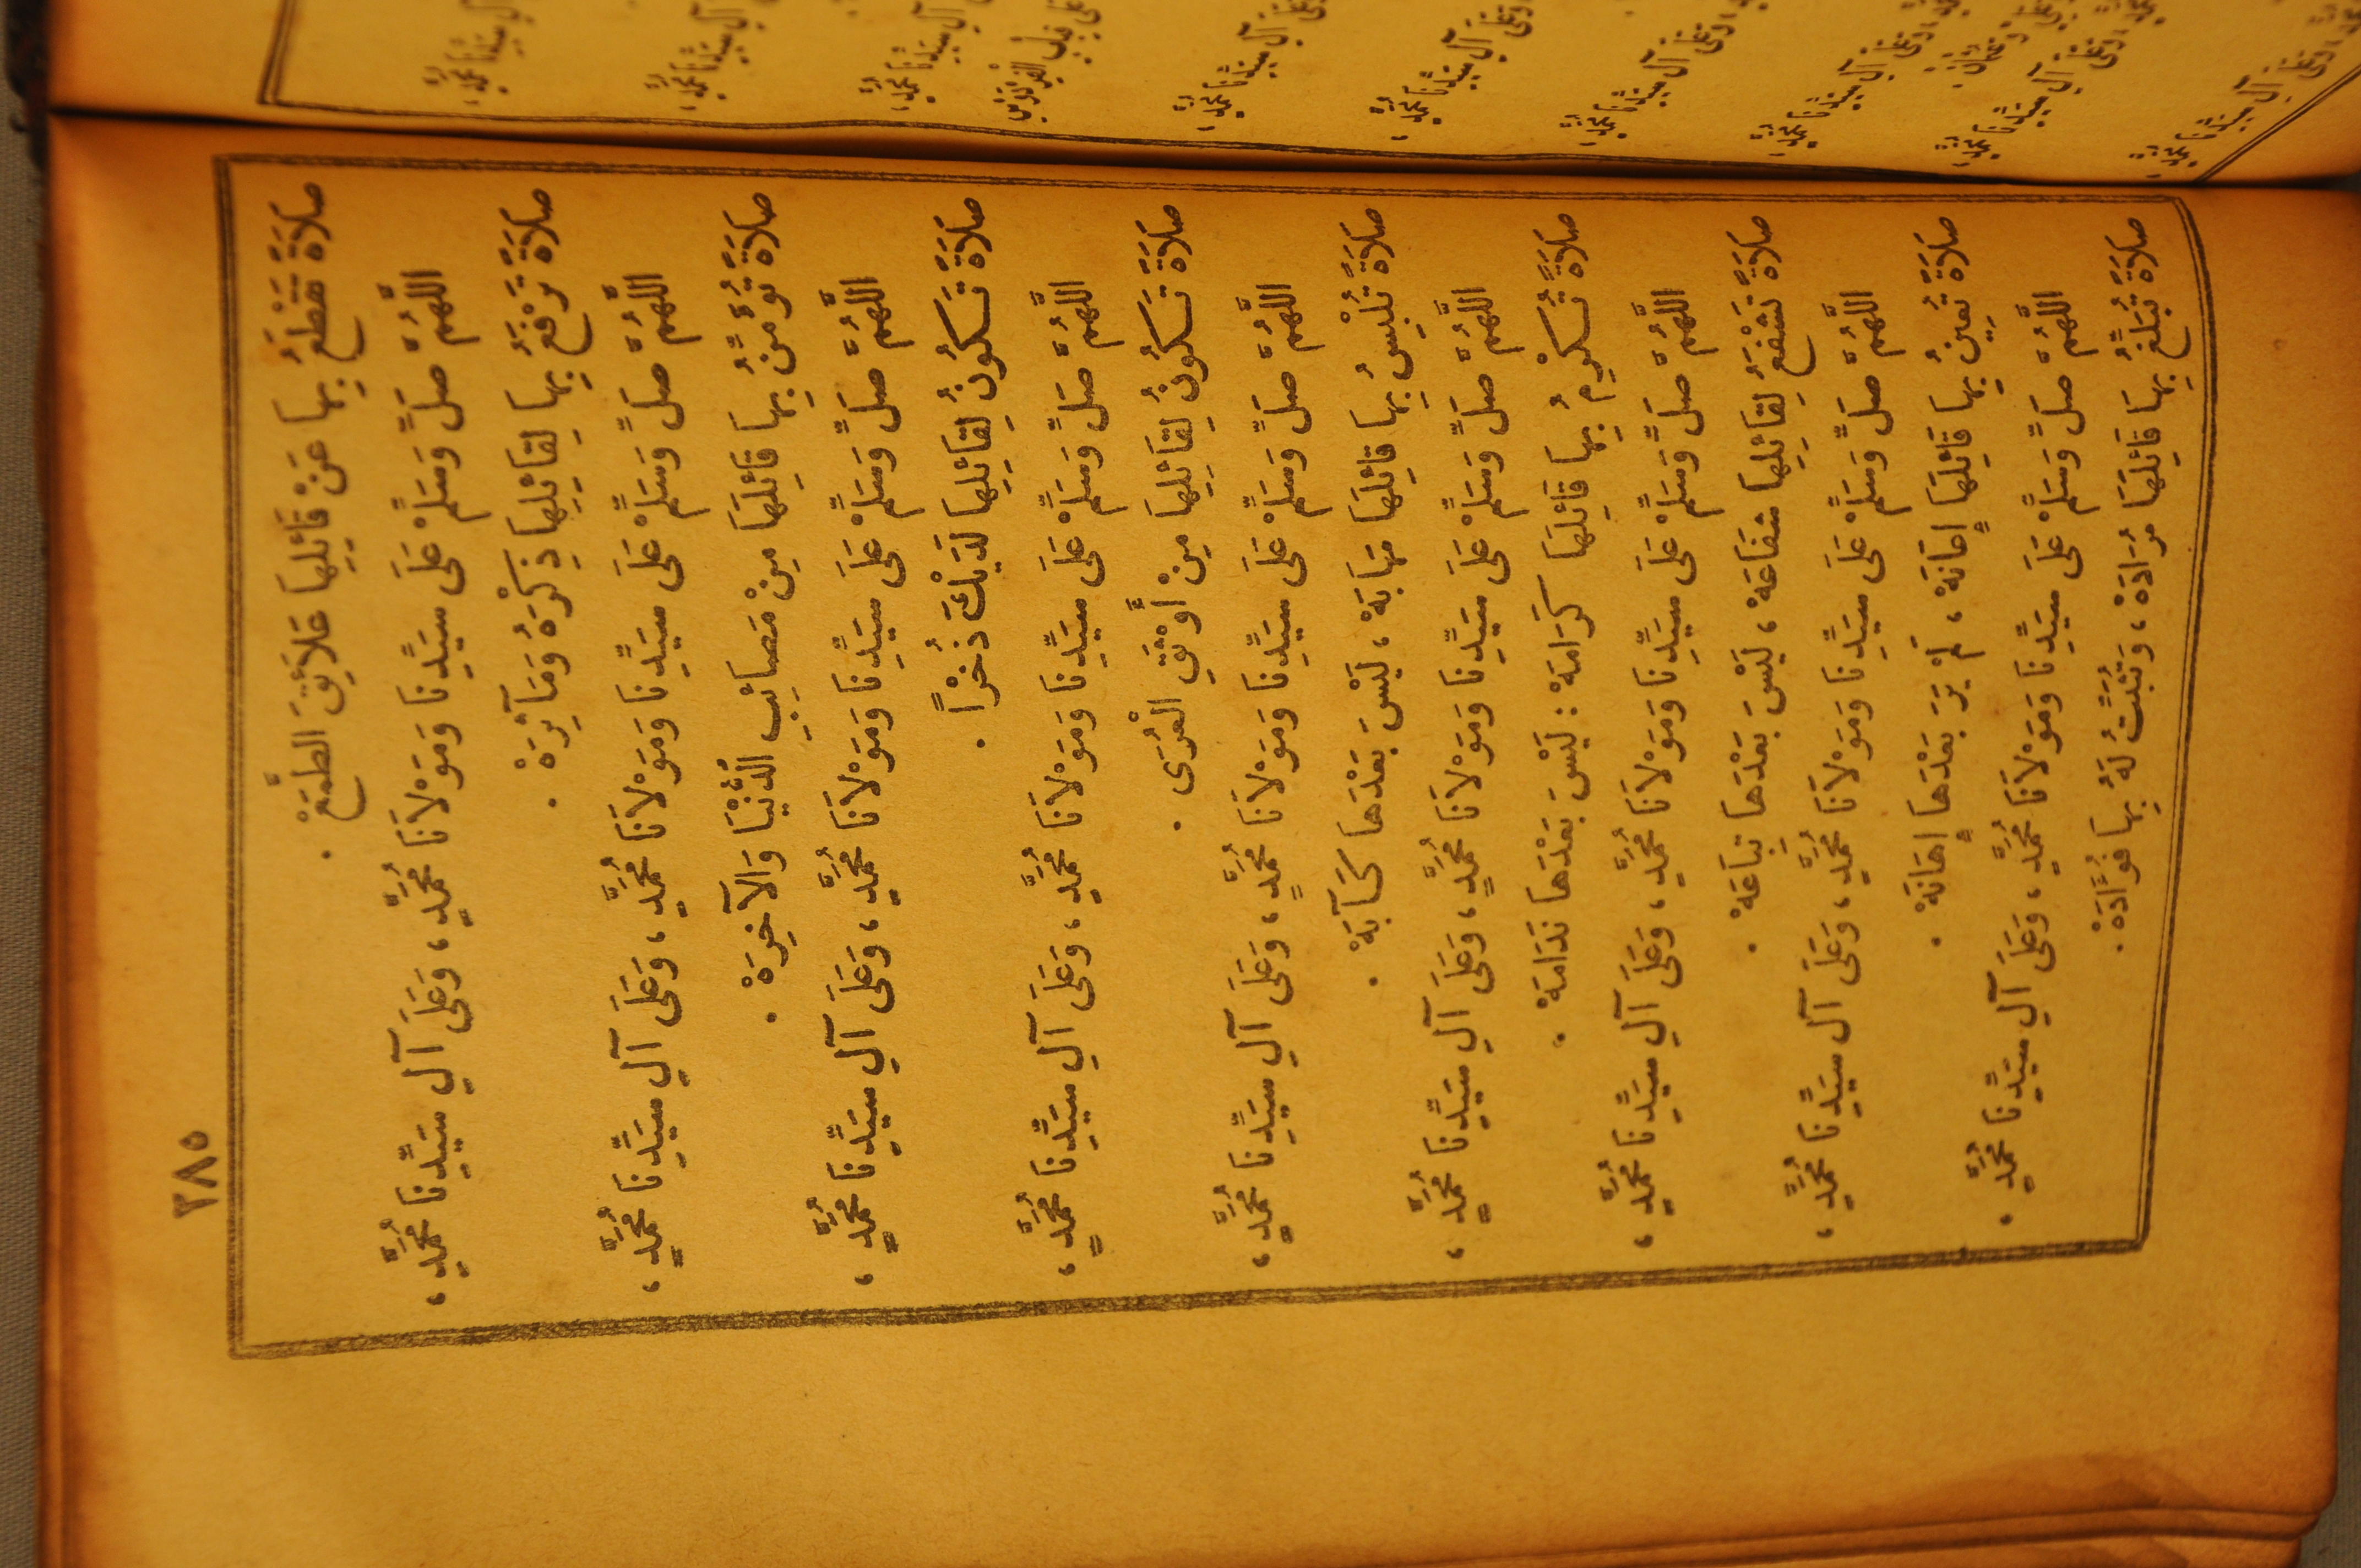 ٣٨٥
صَلَاةً تَقْطَعُ بِهَا عَنْ قَائِلِهَا عَلَائِقَ الطَّمَعْ .
اللَّهُمَّ صَلِّ وَسَلِّمْ عَلَى سَيِّدِنَا وَمَوْلَانَا مُحَمَّدٍ، وَعَلَى آلِ سَيِّدِنَا مُحَمَّدٍ،
صَلَاةً تَرْفَعُ بِهَا لِقَائِلِهَا ذِكْرَهُ وَمَآثِرَهْ .
اللَّهُمَّ صَلِّ وَسَلِّمْ عَلَى سَيِّدِنَا وَمَوْلَانَا مُحَمَّدٍ، وَعَلَى آلِ سَيِّدِنَا مُحَمَّدٍ،
صَلَاةً تُؤَمِّنُ بِهَا قَائِلَهَا مِنْ مَصَائِبِ الدُّنْيَا وَالْآخِرَهْ .
اللَّهُمَّ صَلِّ وَسَلِّمْ عَلَى سَيِّدِنَا وَمَوْلَانَا مُحَمَّدٍ، وَعَلَى آلِ سَيِّدِنَا مُحَمَّدٍ،
صَلَاةً تَكُونُ لِقَائِلِهَا لَدَيْكَ ذُخْرًا .
اللَّهُمَّ صَلِّ وَسَلِّمْ عَلَى سَيِّدِنَا وَمَوْلَانَا مُحَمَّدٍ، وَعَلَى آلِ سَيِّدِنَا مُحَمَّدٍ،
صَلَاةً تَكُونُ لِقَائِلِهَا مِنْ أَوْثَقِ الْعُرَى .
اللَّهُمَّ صَلِّ وَسَلِّمْ عَلَى سَيِّدِنَا وَمَوْلَانَا مُحَمَّدٍ، وَعَلَى آلِ سَيِّدِنَا مُحَمَّدٍ،
صَلَاةً تُلْبِسُ بِهَا قَائِلَهَا مَهَابَهْ، لَيْسَ بَعْدَهَا كَآبَهْ .
اللَّهُمَّ صَلِّ وَسَلِّمْ عَلَى سَيِّدِنَا وَمَوْلَانَا مُحَمَّدٍ، وَعَلَى آلِ سَيِّدِنَا مُحَمَّدٍ،
صَلَاةً تُكْرِمُ بِهَا قَائِلَهَا كَرَامَهْ: لَيْسَ بَعْدَهَا نَدَامَهْ .
اللَّهُمَّ صَلِّ وَسَلِّمْ عَلَى سَيِّدِنَا وَمَوْلَانَا مُحَمَّدٍ، وَعَلَى آلِ سَيِّدِنَا مُحَمَّدٍ،
صَلَاةً تَشْفَعُ لِقَائِلِهَا شَفَاعَهْ، لَيْسَ بَعْدَهَا تِبَاعَهْ .
اللَّهُمَّ صَلِّ وَسَلِّمْ عَلَى سَيِّدِنَا وَمَوْلَانَا مُحَمَّدٍ، وَعَلَى آلِ سَيِّدِنَا مُحَمَّدٍ،
صَلَاةً تُعِينُ بِهَا قَائِلَهَا إِعَانَهْ، لَمْ يَرَ بَعْدَهَا إِهَانَهْ .
اللَّهُمَّ صَلِّ وَسَلِّمْ عَلَى سَيِّدِنَا وَمَوْلَانَا مُحَمَّدٍ، وَعَلَى آلِ سَيِّدِنَا مُحَمَّدٍ .
صَلَاةً تُبَلِّغُ بِهَا قَائِلَهَا مُرَادَهْ، وَتُثَبِّتُ لَهُ بِهَا فُؤَادَهْ .